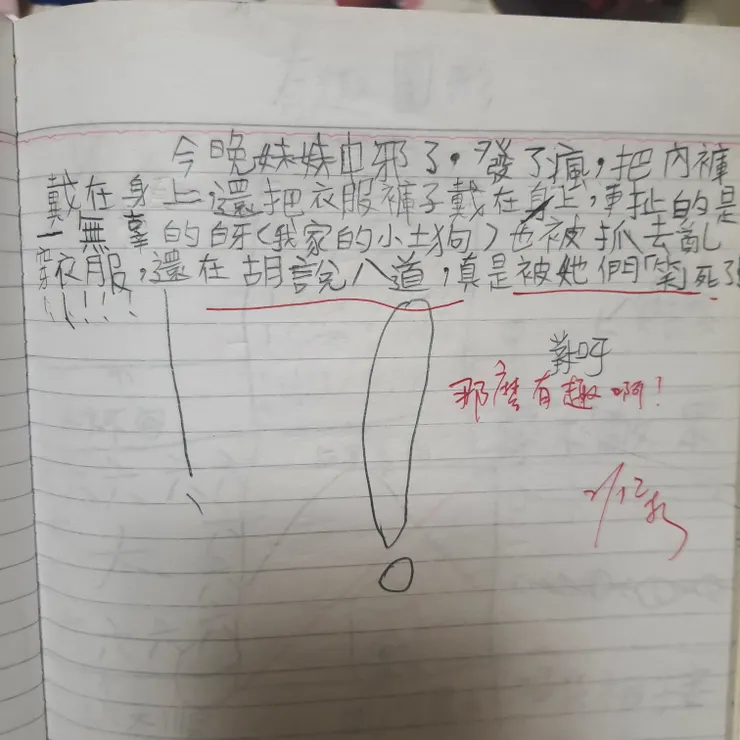 今晚妹妹中邪了,發了瘋,把內褲
戴在身上,還把衣服褲子戴在身上,更扯的是
一無辜的白牙(我家的小土狗)也被抓去亂
穿衣服,還在胡說八道,真是被她們「笑」死了
!!!!!
!
對呀
那麼有趣啊!